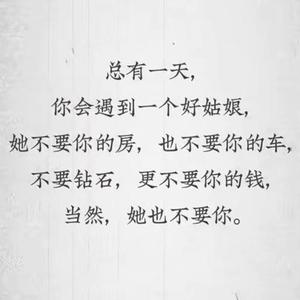 总有一天，
你会遇到一个好姑娘，
她不要你的房，也不要你的车，
不要钻石，更不要你的钱，
当然，她也不要你。